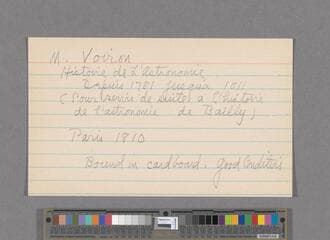 M. Voiron
Histoire de L'Astronomie
Depuis 1781 Jusqua 1811
(Pour servir de suite a L'histoire
de l'astronomie de Bailly)
Paris 1810
Bound in cardboard. Good Condition